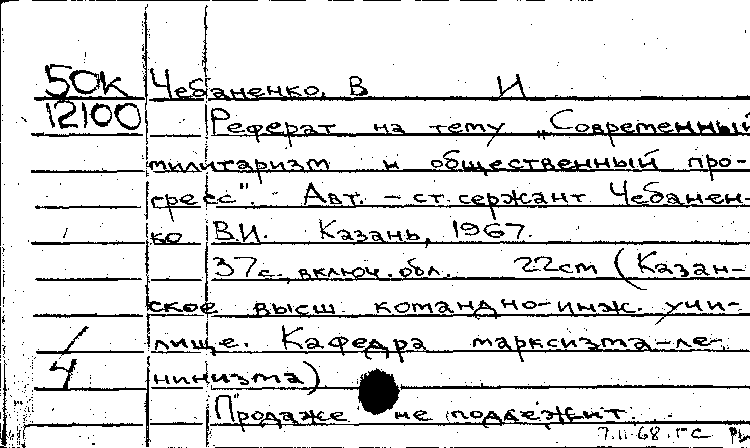 50К Чебаненко, В И
12100 Реферат на тему „Современный
милитаризм и общественный про-
гресс". Авт. – ст. сержант Чебанен-
ко В.И. Казань, 1967.
37с., включ. обл. 22см (Казан-
ское высш командно-инж. учи-
лище. Кафедра марксизма-ле-
4 нинизма)
Продаже не подлежит.
7.II-68. ГС